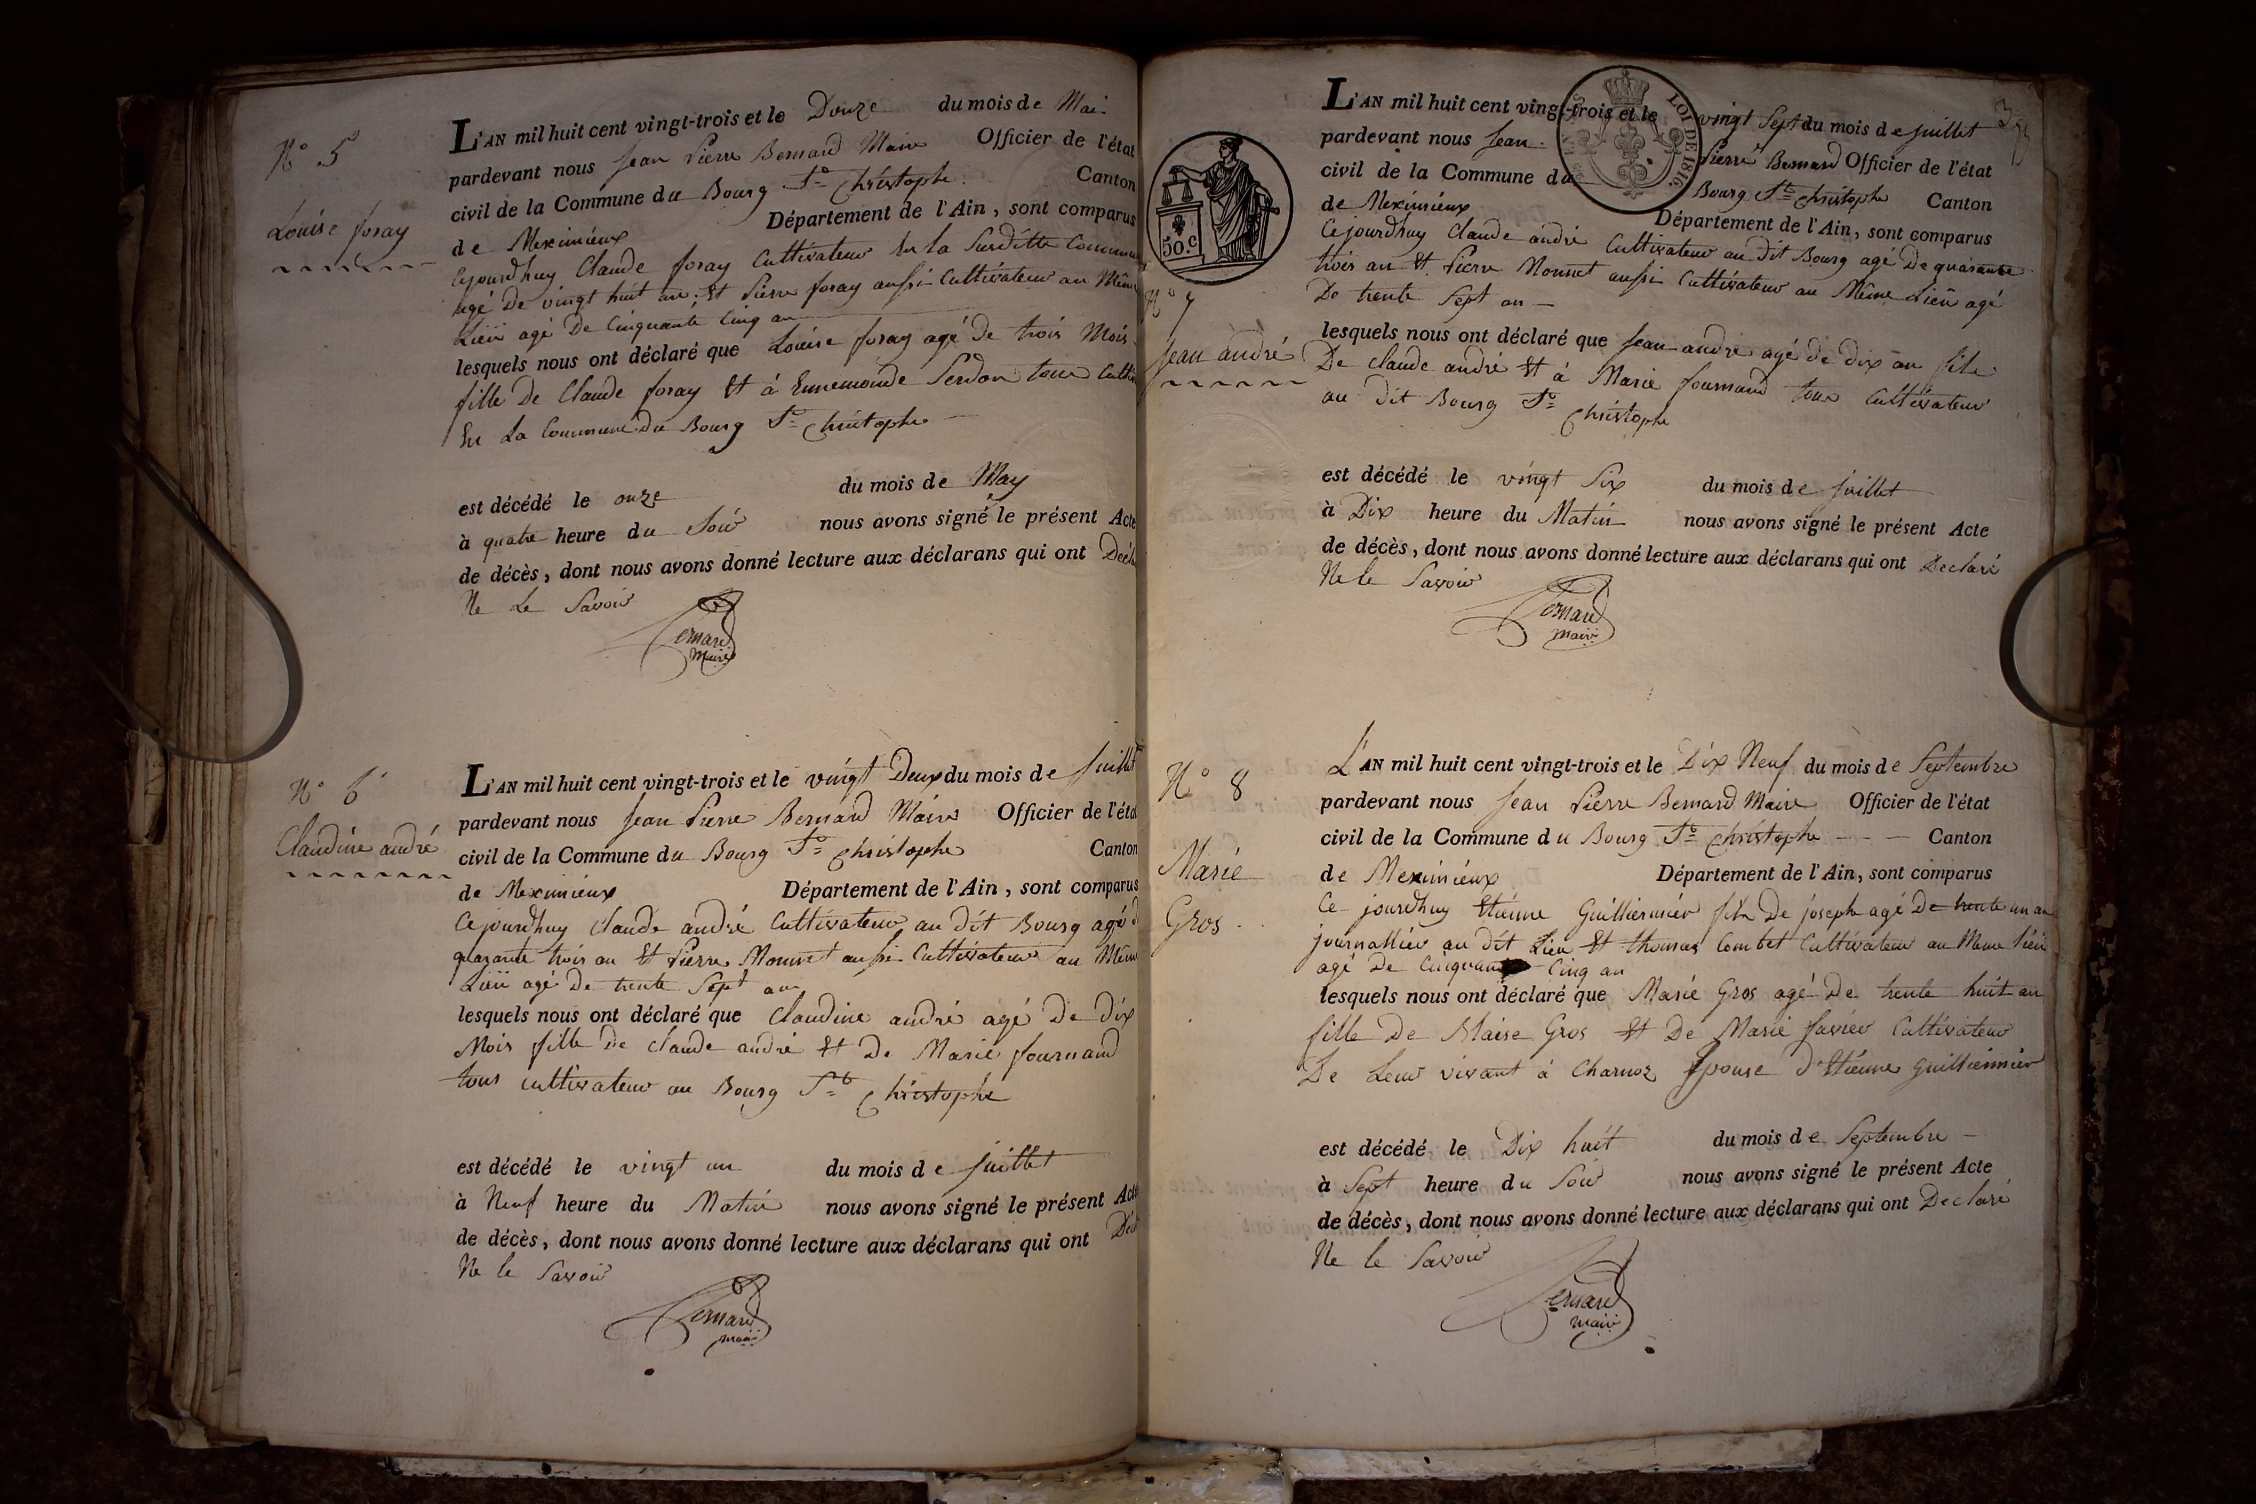 N° 5
Louise foray
L'AN mil huit cent vingt-trois et le Douze du mois de Mai
pardevant nous Jean Pierre Bernard Maire Officier de l'état
civil de la Commune du Bourg St Christophe Canton
de Meximieux Département de l'Ain, sont comparus
Cejourdhuy Claude foray Cultivateur En la Surditte Commune
agé De vingt huit an; Et Pierre foray aussi Cultivateur au Même
Lieu agé De Cinquante Cinq an
lesquels nous ont déclaré que Louise foray agé de trois Mois
fille De Claude foray Et à Ennemonde Serdon tous
En La Commune du Bourg St Christophe
est décédé le onze du mois de May
à quatre heure du Soir nous avons signé le présent Acte
de décès, dont nous avons donné lecture aux déclarans qui ont
Ne Le Savoir
Bernard
Maire
N° 6
Claudine andré
L'AN mil huit cent vingt-trois et le vingt Deux du mois de Juillet
pardevant nous Jean Pierre Bernard Maire Officier de l'état
civil de la Commune du Bourg St Christophe Canton
de Meximieux Département de l'Ain, sont comparus
Cejourdhuy Claude andré Cultivateur au dit Bourg agé d
quarante trois an Et Pierre Monnet aussi Cultivateur au Même
Lieu agé De trente Sept an
lesquels nous ont déclaré que Claudine andré agé De dix
Mois fille De Claude andré Et De Marie fournand
tous cultivateur au Bourg St Christophe
est décédé le vingt un du mois de Juillet
à Neuf heure du Matin nous avons signé le présent Acte
de décès, dont nous avons donné lecture aux déclarans qui ont
Ne le Savoir
Bernard
maire
LOI DE 1816.
50.c
N° 7
Jean andré
L'AN mil huit cent vingt-trois et le vingt Sept du mois de Juillet
pardevant nous Jean Pierre Bernard Officier de l'état
civil de la Commune du Bourg St Christophe Canton
de Meximieux Département de l'Ain, sont comparus
Cejourdhuy Claude andré Cultivateur au Dit Bourg agé De quarante
trois an Et Pierre Monnet aussi Cultivateur au Même Lieu agé
De trente Sept an
lesquels nous ont déclaré que Jean andré agé de dix an fils
De Claude andré Et à Marie fournand tous Cultivateur
au Dit Bourg St Christophe
est décédé le vingt Six du mois de Juillet
à Dix heure du Matin nous avons signé le présent Acte
de décès, dont nous avons donné lecture aux déclarans qui ont Declaré
Ne le Savoir
Bernard
maire
N° 8
Marie
Gros
L'AN mil huit cent vingt-trois et le Dix Neuf du mois de Septembre
pardevant nous Jean Pierre Bernard Maire Officier de l'état
civil de la Commune du Bourg St Christophe Canton
de Meximieux Département de l'Ain, sont comparus
Ce jourdhuy Etienne Guilliermier fils De joseph agé De trente un an
journallier au dit Lieu Et thomas Combet Cultivateur au Meme Lieu
agé De Cinquante Cinq an
lesquels nous ont déclaré que Marie Gros agé De trente huit an
fille De Blaise Gros Et De Marie favier Cultivateur
De Leur vivant à Charnoz Epouse D'Etienne Guilliermier
est décédé le Dix huit du mois de Septembre
à Sept heure du Soir nous avons signé le présent Acte
de décès, dont nous avons donné lecture aux déclarans qui ont Declaré
Ne le Savoir
Bernard
maire